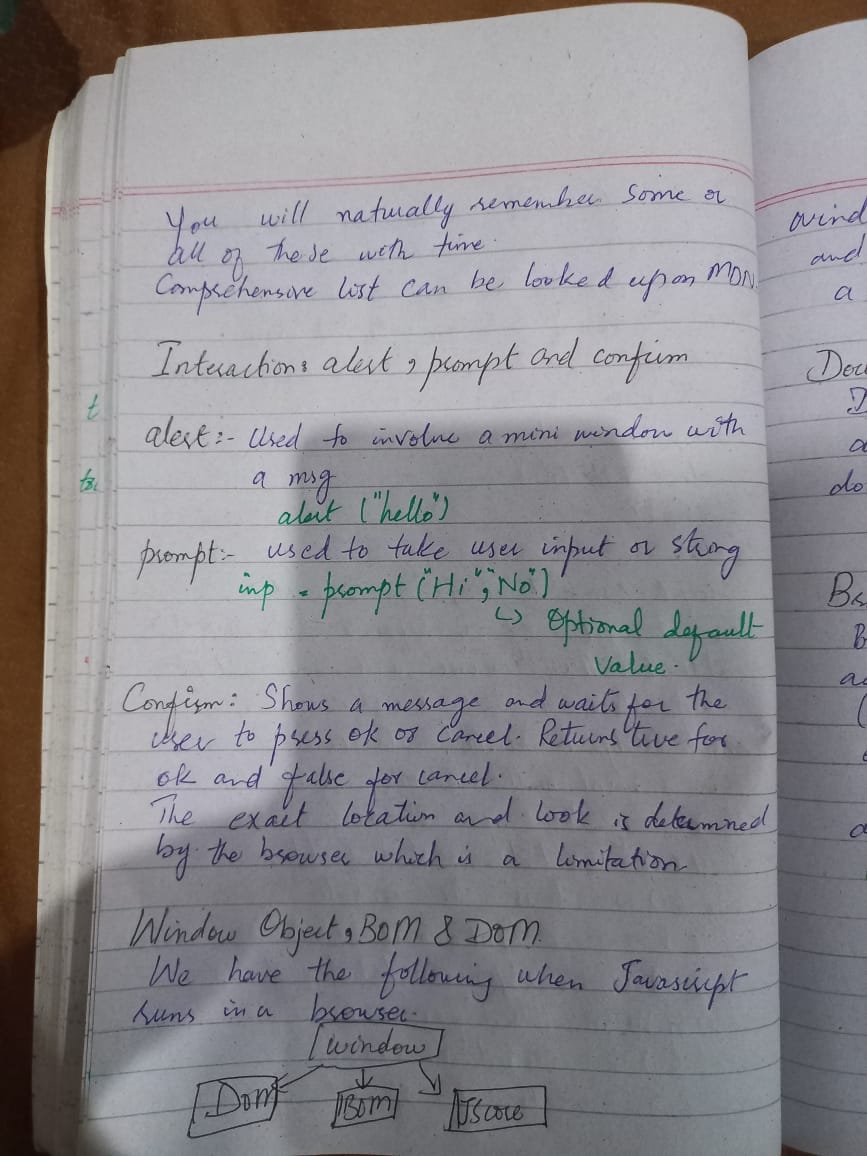 You will naturally remember some or
all of these with time.
Comprehensive list can be looked upon MDN.
Interaction: alert, prompt and confirm
alert:- Used to involve a mini window with
a msg
alert ("hello")
prompt:- used to take user input or string
inp = prompt ("Hi", "No")
↳ Optional default
value.
Confirm: Shows a message and waits for the
user to press ok or cancel. Returns true for
ok and false for cancel.
The exact location and look is determined
by the browser which is a limitation
Window Object, BOM & DOM.
We have the following when Javascript
runs in a browser.
Window
Dom BOM JScore
wind
and
a
Dou
do